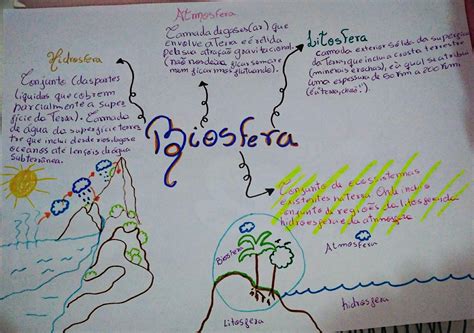 Atmosfera
Camada de gases (ar) que
envolve a Terra e é retida
pela sua atração gravitacional.
Hidrosfera
Conjunto (das partes
líquidas que cobrem
parcialmente a super
fície da Terra). Camada
de água da superfície terres
tre que inclui desde rios, lagos e
oceanos até lençois de água
subterrânea.
Litosfera
camada exterior sólida da superfície
da Terra, que inclui a crosta terrestre
(minerais e rochas), e a qual
uma espessura de 50 km a 200 km
Biosfera
Conjunto de ecossistemas
existentes na terra. Onde inclui o
conjunto de regiões da litosfera, da
hidrosfera e da atmosfera
Atmosfera
Biosfera
Litosfera
hidrosfera